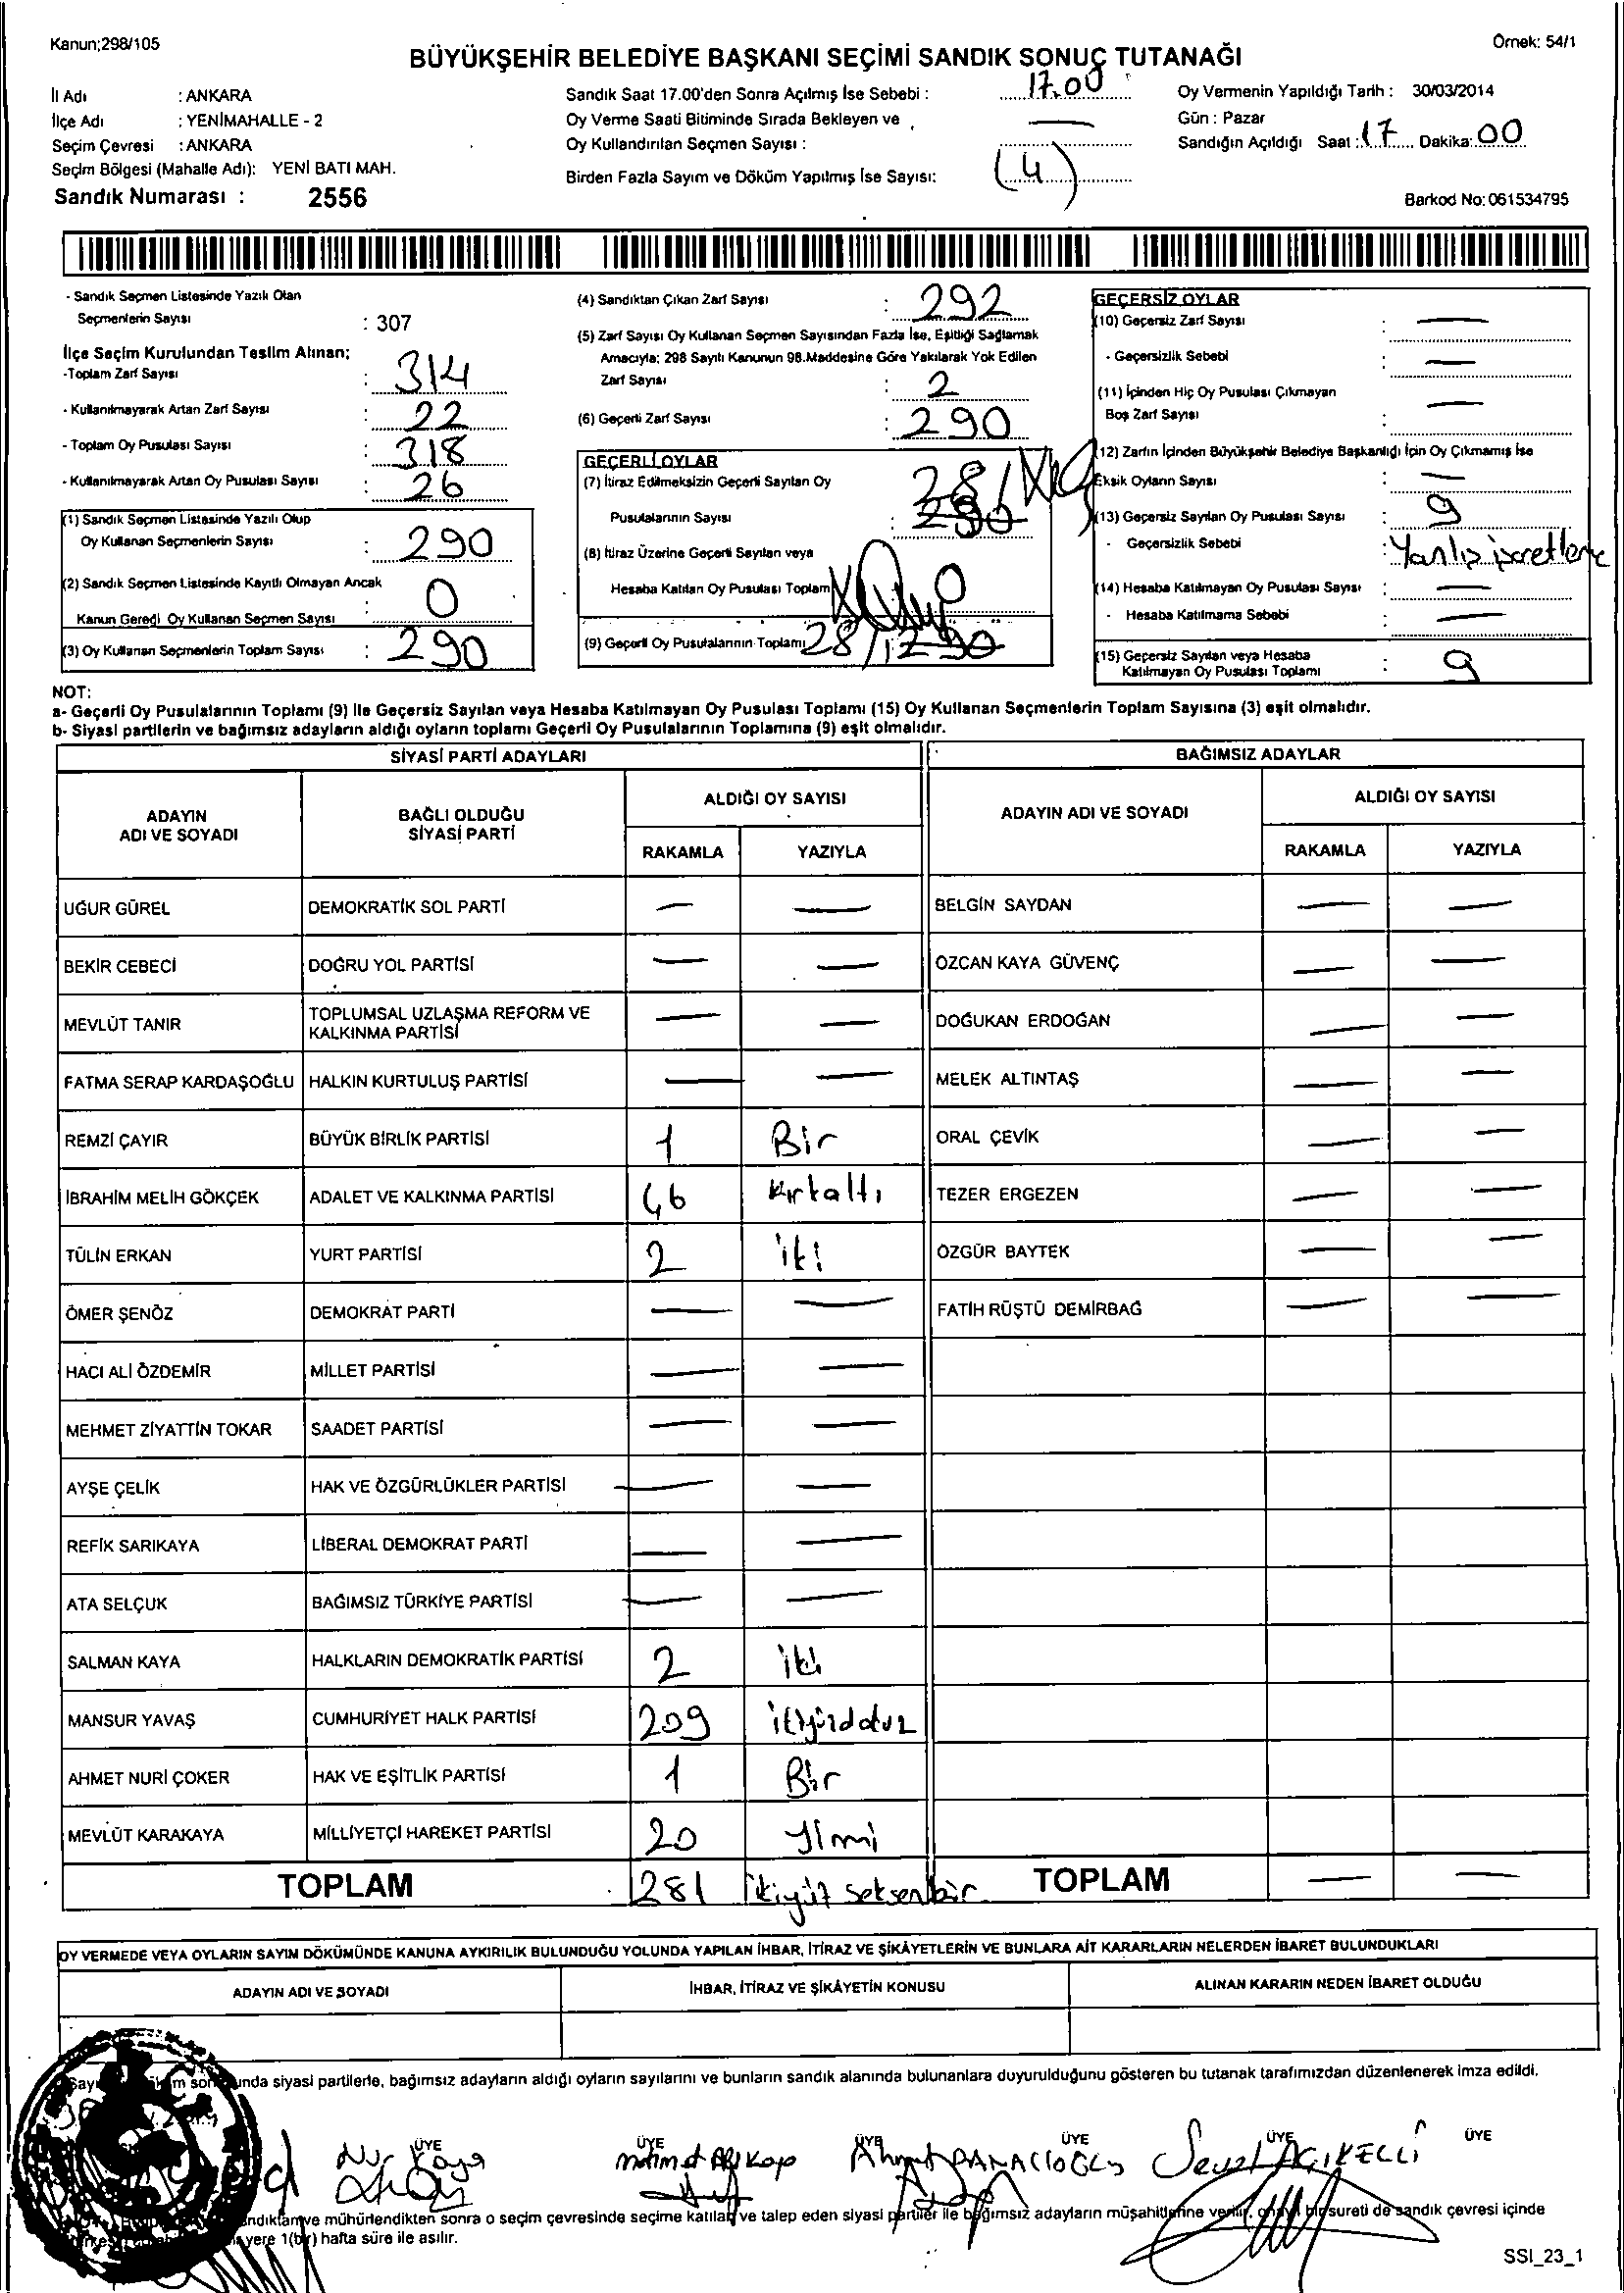 Kanun;298/105
Örnek: 54/1
BÜYÜKŞEHİR BELEDİYE BAŞKANI SEÇİMİ SANDIK SONUÇ TUTANAĞI
İl Adı : ANKARA
İlçe Adı : YENİMAHALLE - 2
Seçim Çevresi : ANKARA
Seçim Bölgesi (Mahalle Adı): YENİ BATI MAH.
Sandık Numarası : 2556
Sandık Saat 17.00'den Sonra Açılmış İse Sebebi : 17.00
Oy Verme Saati Bitiminde Sırada Bekleyen ve
Oy Kullandırılan Seçmen Sayısı : —
Birden Fazla Sayım ve Döküm Yapılmış İse Sayısı: (4)
Oy Vermenin Yapıldığı Tarih : 30/03/2014
Gün : Pazar
Sandığın Açıldığı Saat : 17 Dakika: 00
Barkod No: 061534795
- Sandık Seçmen Listesinde Yazılı Olan
Seçmenlerin Sayısı : 307
İlçe Seçim Kurulundan Teslim Alınan;
-Toplam Zarf Sayısı : 314
- Kullanılmayarak Artan Zarf Sayısı : 22
- Toplam Oy Pusulası Sayısı : 318
- Kullanılmayarak Artan Oy Pusulası Sayısı : 26
(1) Sandık Seçmen Listesinde Yazılı Olup
Oy Kullanan Seçmenlerin Sayısı : 290
(2) Sandık Seçmen Listesinde Kayıtlı Olmayan Ancak
Kanun Gereği Oy Kullanan Seçmen Sayısı : 0
(3) Oy Kullanan Seçmenlerin Toplam Sayısı : 290
(4) Sandıktan Çıkan Zarf Sayısı : 292
(5) Zarf Sayısı Oy Kullanan Seçmen Sayısından Fazla İse, Eşitliği Sağlamak
Amacıyla; 298 Sayılı Kanunun 98.Maddesine Göre Yakılarak Yok Edilen
Zarf Sayısı : 2
(6) Geçerli Zarf Sayısı : 290
GEÇERLİ OYLAR
(7) İtiraz Edilmeksizin Geçerli Sayılan Oy
Pusulalarının Sayısı : 281 290
(8) İtiraz Üzerine Geçerli Sayılan veya
Hesaba Katılan Oy Pusulası Toplamı 0
(9) Geçerli Oy Pusulalarının Toplamı 281 290
GEÇERSİZ OYLAR
(10) Geçersiz Zarf Sayısı : —
- Geçersizlik Sebebi : —
(11) İçinden Hiç Oy Pusulası Çıkmayan
Boş Zarf Sayısı : —
(12) Zarfın İçinden Büyükşehir Belediye Başkanlığı İçin Oy Çıkmamış İse
Eksik Oyların Sayısı : —
(13) Geçersiz Sayılan Oy Pusulası Sayısı : 9
- Geçersizlik Sebebi : Yanlış işaretleme
(14) Hesaba Katılmayan Oy Pusulası Sayısı : —
- Hesaba Katılmama Sebebi : —
(15) Geçersiz Sayılan veya Hesaba
Katılmayan Oy Pusulası Toplamı : 9
NOT:
a- Geçerli Oy Pusulalarının Toplamı (9) ile Geçersiz Sayılan veya Hesaba Katılmayan Oy Pusulası Toplamı (15) Oy Kullanan Seçmenlerin Toplam Sayısına (3) eşit olmalıdır.
b- Siyasi partilerin ve bağımsız adayların aldığı oyların toplamı Geçerli Oy Pusulalarının Toplamına (9) eşit olmalıdır.
SİYASİ PARTİ ADAYLARI
ADAYIN ADI VE SOYADI
BAĞLI OLDUĞU SİYASİ PARTİ
ALDIĞI OY SAYISI
RAKAMLA YAZIYLA
UĞUR GÜREL DEMOKRATİK SOL PARTİ — —
BEKİR CEBECİ DOĞRU YOL PARTİSİ — —
MEVLÜT TANIR TOPLUMSAL UZLAŞMA REFORM VE KALKINMA PARTİSİ — —
FATMA SERAP KARDAŞOĞLU HALKIN KURTULUŞ PARTİSİ — —
REMZİ ÇAYIR BÜYÜK BİRLİK PARTİSİ 1 Bir
İBRAHİM MELİH GÖKÇEK ADALET VE KALKINMA PARTİSİ 46 kırkaltı
TÜLİN ERKAN YURT PARTİSİ 2 iki
ÖMER ŞENÖZ DEMOKRAT PARTİ — —
HACI ALİ ÖZDEMİR MİLLET PARTİSİ — —
MEHMET ZİYATTİN TOKAR SAADET PARTİSİ — —
AYŞE ÇELİK HAK VE ÖZGÜRLÜKLER PARTİSİ — —
REFİK SARIKAYA LİBERAL DEMOKRAT PARTİ — —
ATA SELÇUK BAĞIMSIZ TÜRKİYE PARTİSİ — —
SALMAN KAYA HALKLARIN DEMOKRATİK PARTİSİ 2 iki
MANSUR YAVAŞ CUMHURİYET HALK PARTİSİ 209 ikiyüzdokuz
AHMET NURİ ÇOKER HAK VE EŞİTLİK PARTİSİ 1 Bir
MEVLÜT KARAKAYA MİLLİYETÇİ HAREKET PARTİSİ 20 Yirmi
TOPLAM 281 ikiyüz seksenbir
BAĞIMSIZ ADAYLAR
ADAYIN ADI VE SOYADI
ALDIĞI OY SAYISI
RAKAMLA YAZIYLA
BELGİN SAYDAN — —
ÖZCAN KAYA GÜVENÇ — —
DOĞUKAN ERDOĞAN — —
MELEK ALTINTAŞ — —
ORAL ÇEVİK — —
TEZER ERGEZEN — —
ÖZGÜR BAYTEK — —
FATİH RÜŞTÜ DEMİRBAĞ — —
TOPLAM — —
OY VERMEDE VEYA OYLARIN SAYIM DÖKÜMÜNDE KANUNA AYKIRILIK BULUNDUĞU YOLUNDA YAPILAN İHBAR, İTİRAZ VE ŞİKÂYETLERİN VE BUNLARA AİT KARARLARIN NELERDEN İBARET BULUNDUKLARI
ADAYIN ADI VE SOYADI
İHBAR, İTİRAZ VE ŞİKÂYETİN KONUSU
ALINAN KARARIN NEDEN İBARET OLDUĞU
siyasi partilerle, bağımsız adayların aldığı oyların sayılarını ve bunların sandık alanında bulunanlara duyurulduğunu gösteren bu tutanak tarafımızdan düzenlenerek imza edildi.
ÜYE ÜYE ÜYE ÜYE ÜYE ÜYE
Nur Kaya
Ahmet PANACIOĞLU
ve mühürlendikten sonra o seçim çevresinde seçime katılan ve talep eden siyasi partiler ile bağımsız adayların müşahitlerine verilir, onaylı bir sureti de sandık çevresi içinde
yere 1(bir) hafta süre ile asılır.
SSI_23_1